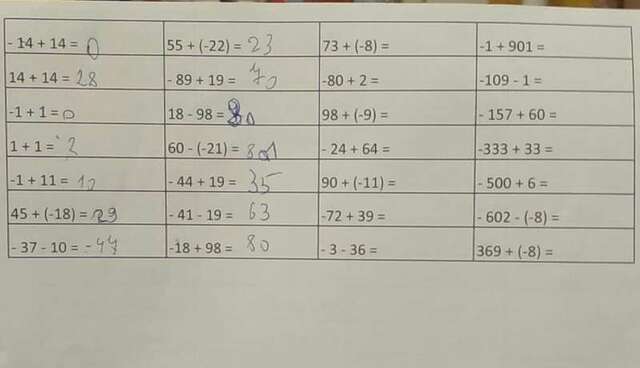 - 14 + 14 = 0 55 + (-22) = 23 73 + (-8) = -1 + 901 =
14 + 14 = 28 - 89 + 19 = 70 -80 + 2 = -109 - 1 =
-1 + 1 = 0 18 - 98 = 80 98 + (-9) = - 157 + 60 =
1 + 1 = 2 60 - (-21) = - 24 + 64 = -333 + 33 =
-1 + 11 = 10 - 44 + 19 = 35 90 + (-11) = - 500 + 6 =
45 + (-18) = 29 - 41 - 19 = 63 -72 + 39 = - 602 - (-8) =
- 37 - 10 = -47 -18 + 98 = 80 - 3 - 36 = 369 + (-8) =